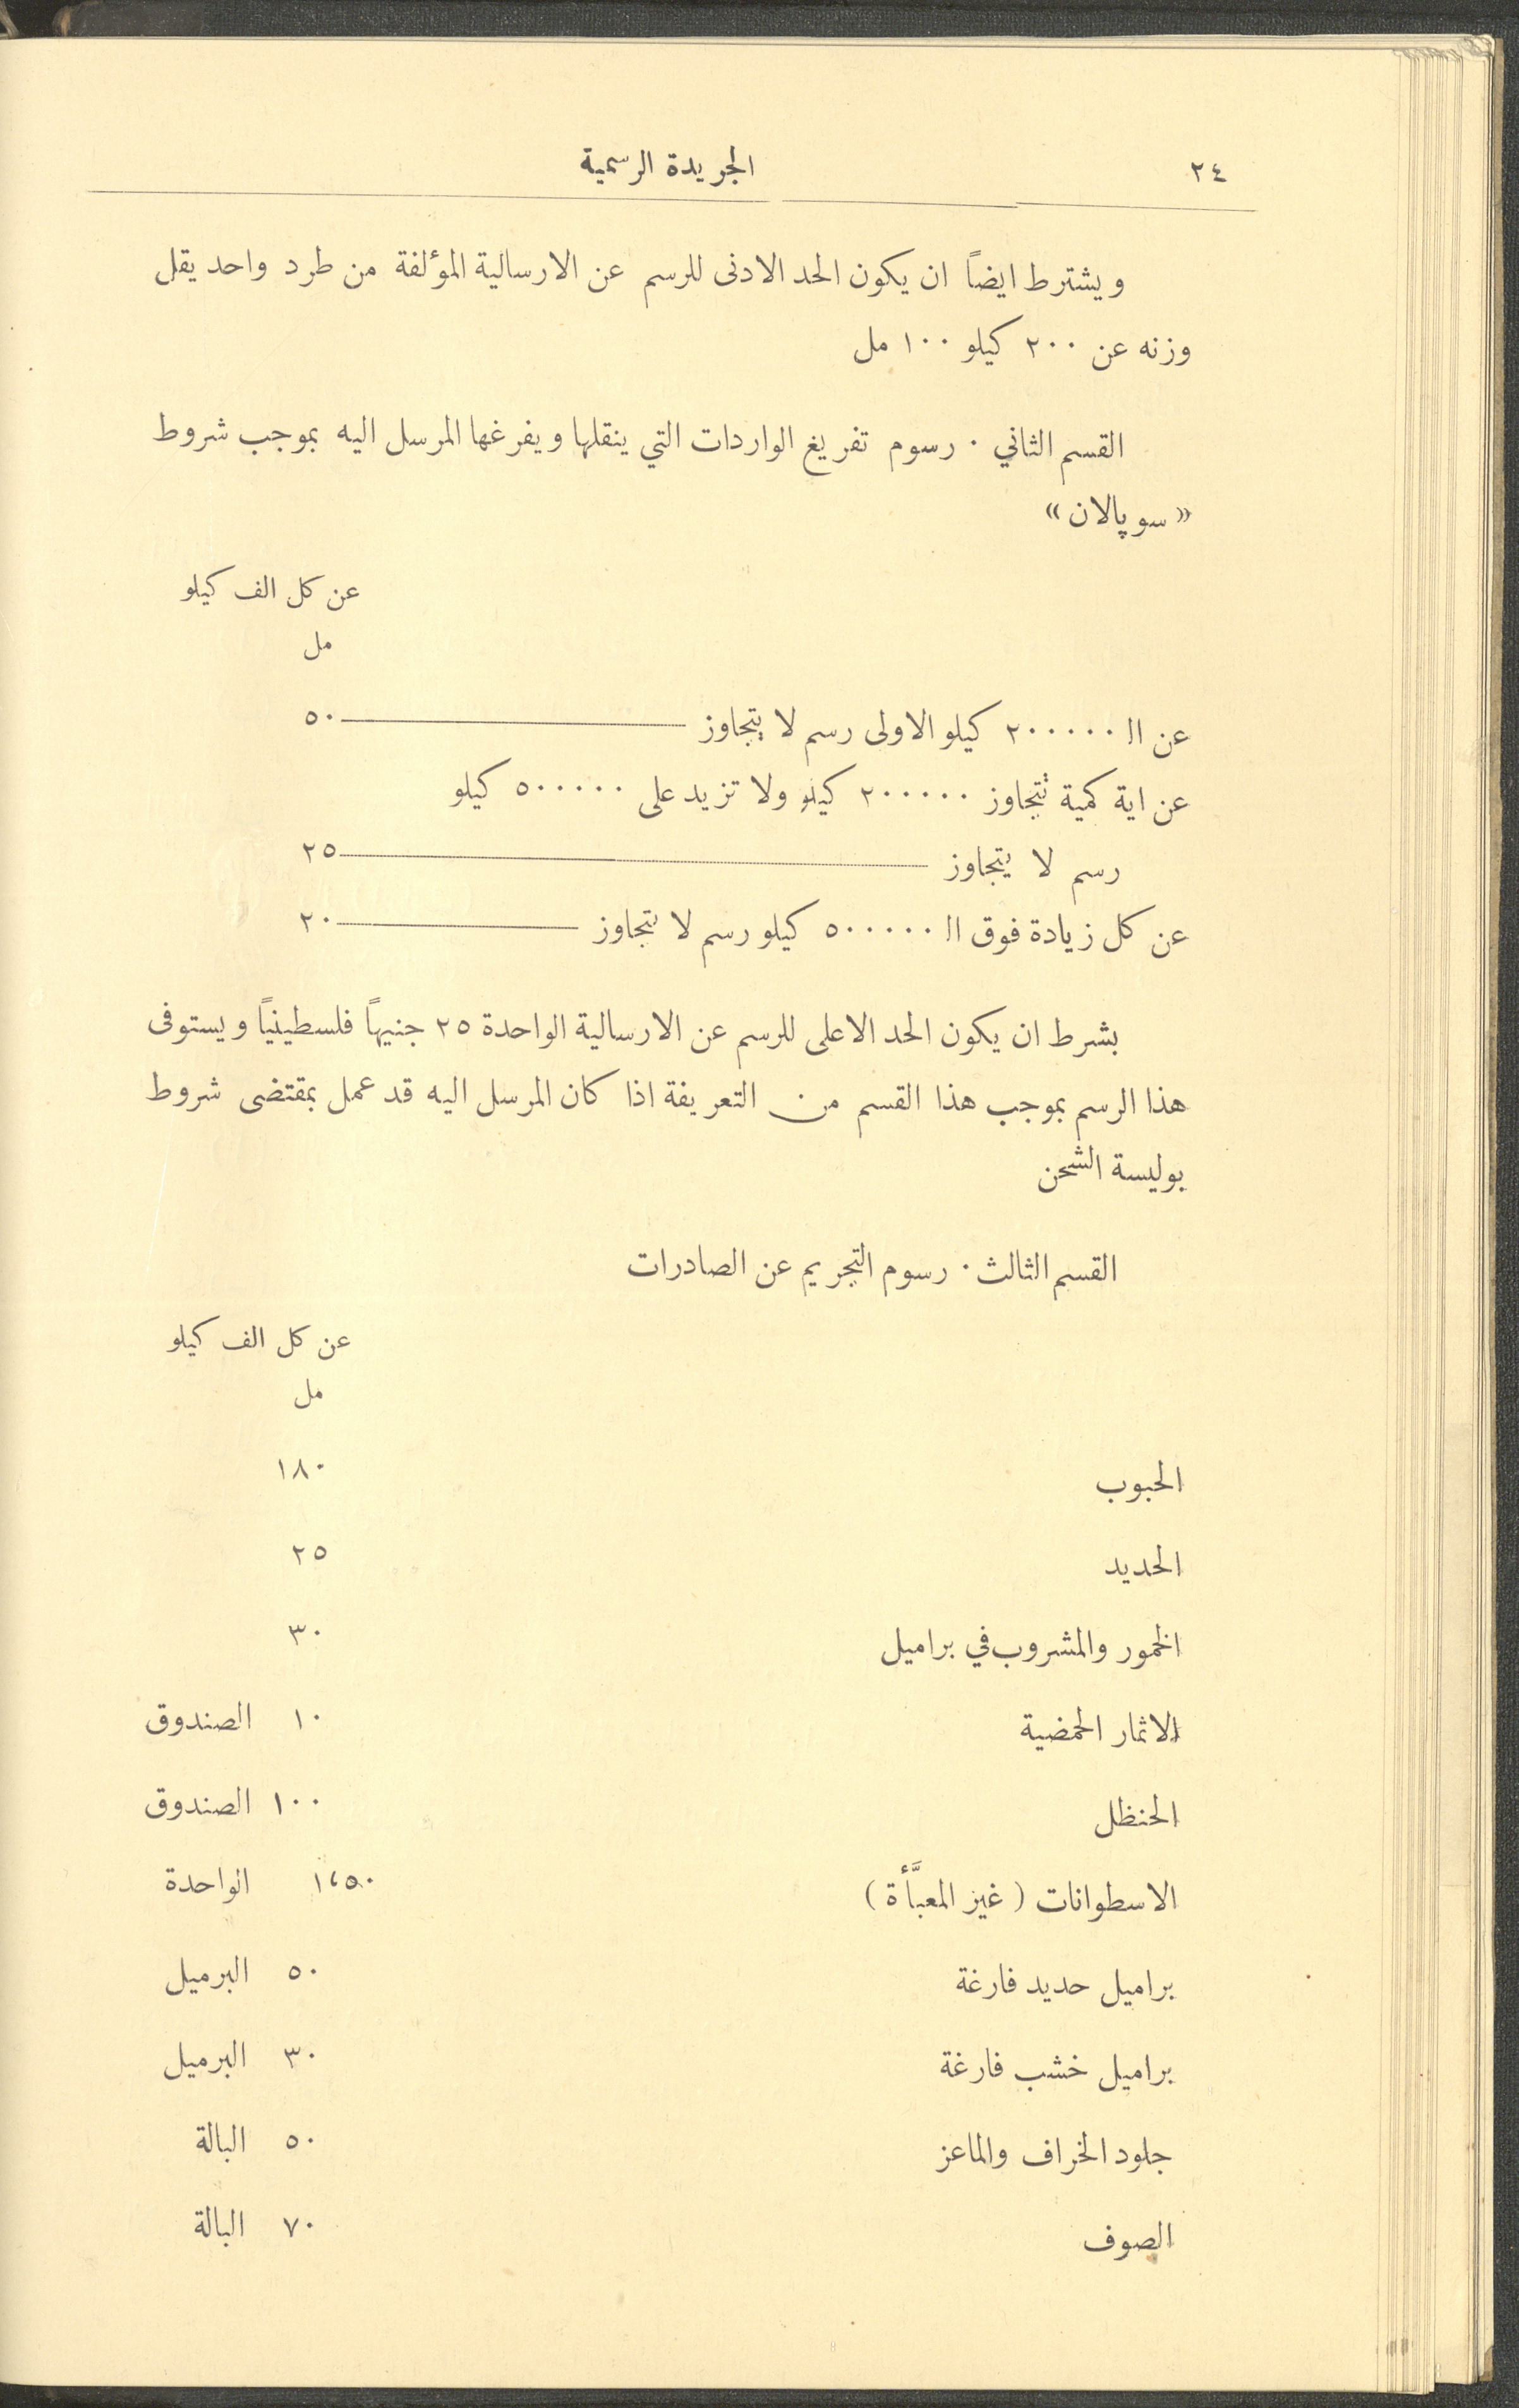 ٢٤
الجريدة الرسمية
ويشترط ايضاً ان يكون الحد الادنى للرسم عن الارسالية المؤلفة من طرد واحد يقل
وزنه عن ٢٠٠ كيلو ١٠٠ مل
القسم الثاني · رسوم تفريغ الواردات التي ينقلها ويفرغها المرسل اليه بموجب شروط
«سوپالان»
عن كل الف كيلو
مل
عن الـ ٢٠٠٠٠٠ كيلو الاولى رسم لا يتجاوز ٥٠
عن اية كمية تتجاوز ٢٠٠٠٠٠ كيلو ولا تزيد على ٥٠٠٠٠٠ كيلو
رسم لا يتجاوز ٢٥
عن كل زيادة فوق الـ ٥٠٠٠٠٠ كيلو رسم لا تتجاوز ٢٠
بشرط ان يكون الحد الاعلى للرسم عن الارسالية الواحدة ٢٥ جنيهاً فلسطينياً ويستوفى
هذا الرسم بموجب هذا القسم من التعريفة اذا كان المرسل اليه قد عمل بمقتضى شروط
بوليسة الشحن
القسم الثالث · رسوم التجريم عن الصادرات
عن كل الف كيلو
مل
الحبوب ١٨٠
الحديد ٢٥
الخمور والمشروب في براميل ٣٠
الاثمار الحمضية ١٠ الصندوق
الحنظل ١٠٠ الصندوق
الاسطوانات (غير المعبَّأة) ١،٥٠ الواحدة
براميل حديد فارغة ٥٠ البرميل
براميل خشب فارغة ٣٠ البرميل
جلود الخراف والماعز ٥٠ البالة
الصوف ٧٠ البالة